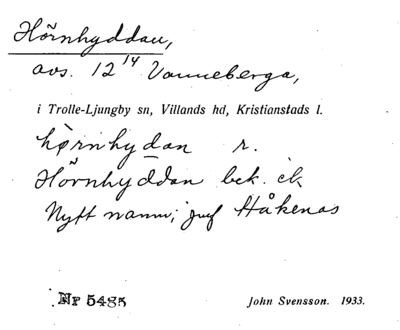 Hörnhyddan,
avs. 12¹⁴ Vanneberga,
i Trolle-Ljungby sn, Villands hd, Kristianstads l.
hørnhydan r.
Hörnhyddan bek. ck
Nytt namn; jmf Håkenas
Nr 5485
John Svensson. 1933.